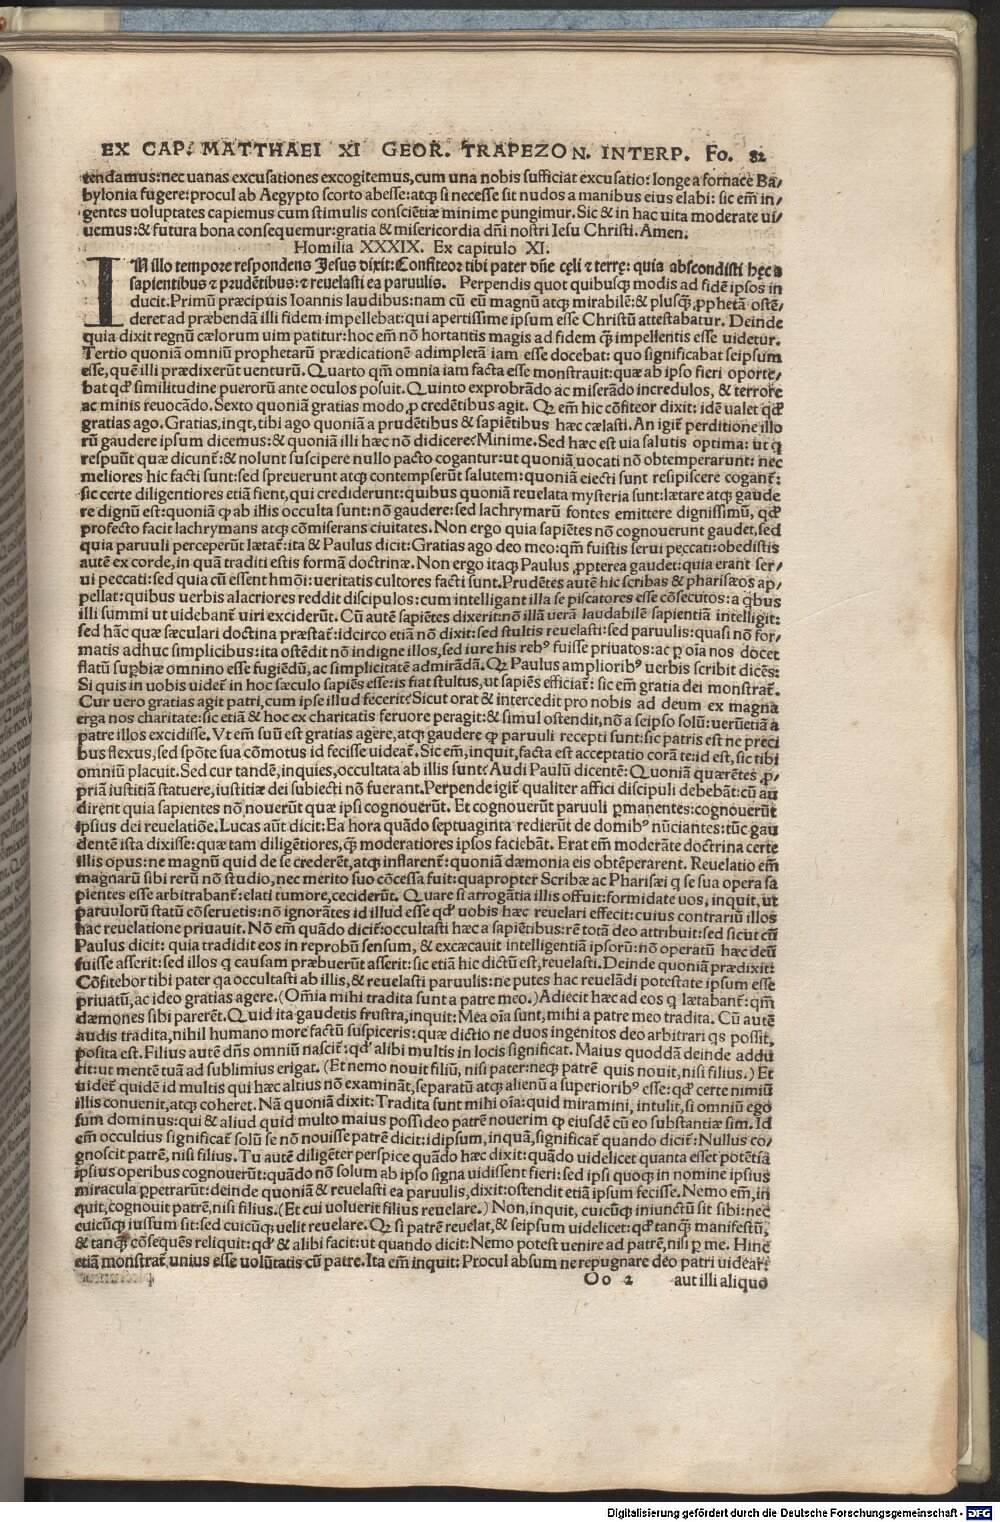 EX CAP. MATTHAEI XI GEOR. TRAPEZON. INTERP. Fo. 82
tendamus:nec uanas excusationes excogitemus,cum una nobis sufficiat excusatio: longe a fornace Ba/
bylonia fugere:procul ab Aegypto scorto abesse:atqꝫ si necesse sit nudos a manibus eius elabi: sic em̄ in/
gentes uoluptates capiemus cum stimulis consciētiæ minime pungimur. Sic & in hac uita moderate ui/
uemus:& futura bona consequemur:gratia & misericordia dñi nostri Iesu Christi. Amen.
Homilia XXXIX. Ex capitulo XI.
IN illo tempore respondens Jesus dixit: Confiteor tibi pater dñe cęli ⁊ terrę: quia abscondisti hęc a
sapientibus ⁊ prudētibus: ⁊ reuelasti ea paruulis. Perpendis quot quibusqꝫ modis ad fidē ipsos in
ducit.Primū præcipuis Ioannis laudibus:nam cū eū magnū atqꝫ mirabilē:& plusqꝫ̄ ꝓphetā ostē/
deret ad præbendā illi fidem impellebat:qui apertissime ipsum esse Christū attestabatur. Deinde
quia dixit regnū cælorum uim patitur:hoc em̄ nō hortantis magis ad fidem qꝫ̄ impellentis esse uidetur.
Tertio quoniā omniū prophetarū prædicationē adimpletā iam esse docebat: quo significabat seipsum
esse,quē illi prædixerūt uenturū. Quarto qm̄ omnia iam facta esse monstrauit:quæ ab ipso fieri oporte/
bat qd̛ similitudine puerorū ante oculos posuit. Quinto exprobrādo ac miserādo incredulos, & terrore
ac minis reuocādo. Sexto quoniā gratias modo ꝓ credētibus agit. Qꝫ em̄ hic cōfiteor dixit: idē ualet qd̛
gratias ago. Gratias,inqt,tibi ago quoniā a prudētibus & sapiētibus hæc cælasti. An igit̄ perditione illo
rū gaudere ipsum dicemus:& quoniā illi hæc nō didicere? Minime. Sed hæc est uia salutis optima: ut q
respuūt quæ dicunt̄:& nolunt suscipere nullo pacto cogantur:ut quoniā uocati nō obtemperarunt: nec
meliores hic facti sunt:sed spreuerunt atqꝫ contempserūt salutem:quoniā eiecti sunt resipiscere cogant̄:
sic certe diligentiores etiā fient,qui crediderunt:quibus quoniā reuelata mysteria sunt:lætare atqꝫ gaude
re dignū est:quoniā ꝙ ab illis occulta sunt:nō gaudere:sed lachrymarū fontes emittere dignissimū, qd̛
profecto facit lachrymans atqꝫ cōmiserans ciuitates. Non ergo quia sapiētes nō cognouerunt gaudet,sed
quia paruuli perceperūt lætat̄:ita & Paulus dicit: Gratias ago deo meo:qm̄ fuistis serui peccati:obedistis
autē ex corde, in quā traditi estis formā doctrinæ. Non ergo itaqꝫ Paulus ꝓpterea gaudet:quia erant ser/
ui peccati:sed quia cū essent hmōi:ueritatis cultores facti sunt.Prudētes autē hic scribas & pharisæos ap/
pellat:quibus uerbis alacriores reddit discipulos:cum intelligant illa se piscatores esse cōsecutos:a qbus
illi summi ut uidebant̄ uiri exciderūt. Cū autē sapiētes dixerit:nō illā uerā laudabilē sapientiā intelligit:
sed hāc quæ sæculari doctina præstat̄:idcirco etiā nō dixit:sed stultis reuelasti:sed paruulis:quasi nō for/
matis adhuc simplicibus:ita ostēdit nō indigne illos,sed iure his rebꝰ fuisse priuatos:ac ꝑ oīa nos docet
flatū suꝑbiæ omnino esse fugiēdū,ac simplicitatē admirādā. Qꝫ Paulus amplioribꝰ uerbis scribit dicēs:
Si quis in uobis uidet̄ in hoc sæculo sapiēs esse:is fiat stultus,ut sapiēs efficiat̄: sic em̄ gratia dei monstrat̄.
Cur uero gratias agit patri,cum ipse illud fecerit? Sicut orat & intercedit pro nobis ad deum ex magna
erga nos charitate:sic etiā & hoc ex charitatis feruore peragit:& simul ostendit,nō a seipso solū:uerūetiā a
patre illos excidisse. Vt em̄ suū est gratias agere,atqꝫ gaudere ꝙ paruuli recepti sunt:sic patris est ne preci
bus flexus,sed spōte sua cōmotus id fecisse uideat̄. Sic em̄,inquit,facta est acceptatio corā te:id est,sic tibi
omniū placuit. Sed cur tandē,inquies,occultata ab illis sunt? Audi Paulū dicentē: Quoniā quærētes ꝓ/
priā iustitiā statuere,iustitiæ dei subiecti nō fuerant.Perpende igit̄ qualiter affici discipuli debebāt:cū au
dirent quia sapientes nō nouerūt quæ ipsi cognouerūt. Et cognouerūt paruuli ꝑmanentes:cognouerūt
ipsius dei reuelatiōe. Lucas aūt dicit: Ea hora quādo septuaginta redierūt de domibꝰ nūciantes:tūc gau
dentē ista dixisse:quæ tam diligētiores,qꝫ̄ moderatiores ipsos faciebāt. Erat em̄ moderāte doctrina certe
illis opus:ne magnū quid de se crederēt,atqꝫ inflarent̄: quoniā dæmonia eis obtēperarent. Reuelatio em̄
magnarū sibi rerū nō studio,nec merito suo cōcessa fuit:quapropter Scribæ ac Pharisæi q se sua opera sa
pientes esse arbitrabant̄:elati tumore,ceciderūt. Quare si arrogātia illis offuit:formidate uos, inquit, ut
paruulorū statū cōseruetis:nō ignorātes id illud esse qd̛ uobis hæc reuelari effecit:cuius contrariū illos
hac reuelatione priuauit. Nō em̄ quādo dicit̄:occultasti hæc a sapiētibus:rē totā deo attribuit:sed sicut cū
Paulus dicit: quia tradidit eos in reprobū sensum, & excæcauit intelligentiā ipsorū:nō operatū hæc deū
fuisse asserit:sed illos q causam præbuerūt asserit: sic etiā hic dictū est,reuelasti. Deinde quoniā prædixit:
Cōfitebor tibi pater qa occultasti ab illis,& reuelasti paruulis:ne putes hac reuelādi potestate ipsum esse
priuatū,ac ideo gratias agere. (Om̄ia mihi tradita sunt a patre meo.) Adiecit hæc ad eos q lætabant̄: qm̄
dæmones sibi parerēt. Quid ita gaudetis frustra,inquit: Mea oīa sunt,mihi a patre meo tradita. Cū autē
audis tradita,nihil humano more factū suspiceris: quæ dictio ne duos ingenitos deo arbitrari qs possit,
posita est. Filius autē dñs omniū nascit̄:qd̛ alibi multis in locis significat. Maius quoddā deinde addu
cit:ut mentē tuā ad sublimius erigat. (Et nemo nouit filiū, nisi pater:neqꝫ patrē quis nouit,nisi filius.) Et
uidet̄ quidē id multis qui hæc altius nō examināt,separatū atqꝫ alienū a superioribꝰ esse: qd̛ certe nimiū
illis conuenit,atqꝫ coheret. Nā quoniā dixit: Tradita sunt mihi oīa:quid miramini, intulit,si omniū ego
sum dominus:qui & aliud quid multo maius possideo patrē nouerim ꝙ eiusdē cū eo substantiæ sim. Id
em̄ occultius significat̄ solū se nō nouisse patrē dicit:idipsum,inquā,significat̄ quando dicit̄: Nullus co/
gnoscit patrē,nisi filius. Tu autē diligēter perspice quādo hæc dixit:quādo uidelicet quanta esset potētiā
ipsius operibus cognouerūt:quādo nō solum ab ipso signa uidissent fieri:sed ipsi quoqꝫ in nomine ipsius
miracula ꝑpetrarūt:deinde quoniā & reuelasti ea paruulis,dixit:ostendit etiā ipsum fecisse. Nemo em̄,in
quit,cognouit patrē,nisi filius.(Et cui uoluerit filius reuelare.) Non,inquit, cuicūqꝫ iniunctū sit sibi:nec
cuicūqꝫ iussum sit:sed cuicūqꝫ uelit reuelare. Qꝫ si patrē reuelat,& seipsum uidelicet: qd̛ tanqꝫ̄ manifestū,
& tanqꝫ̄ cōsequēs reliquit:qd̛ & alibi facit:ut quando dicit: Nemo potest uenire ad patrē,nisi ꝑ me. Hinc
etiā monstrat̄,unius esse uolūtatis cū patre. Ita em̄ inquit: Procul absum ne repugnare deo patri uidear:
Oo 2 aut illi aliquo
Digitalisierung gefördert durch die Deutsche Forschungsgemeinschaft - DFG